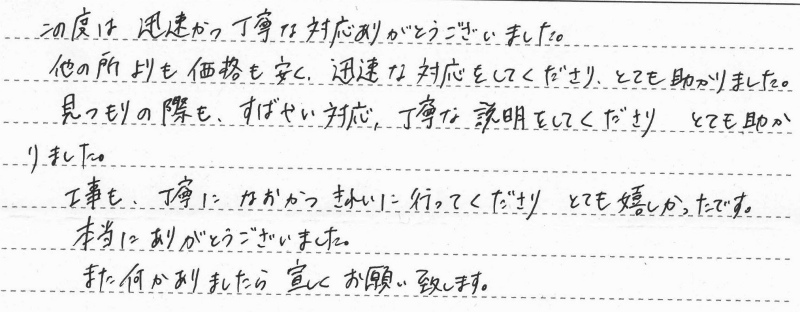 この度は 迅速かつ丁寧な対応ありがとうございました。
他の所よりも価格も安く、迅速な対応をしてくださり、とても助かりました。
見つもりの際も、すばやい対応、丁寧な説明をしてくださり とても助か
りました。
工事も、丁寧に なおかつ きれいに行ってくださり とても嬉しかったです。
本当にありがとうございました。
また何かありましたら 宜しくお願い致します。